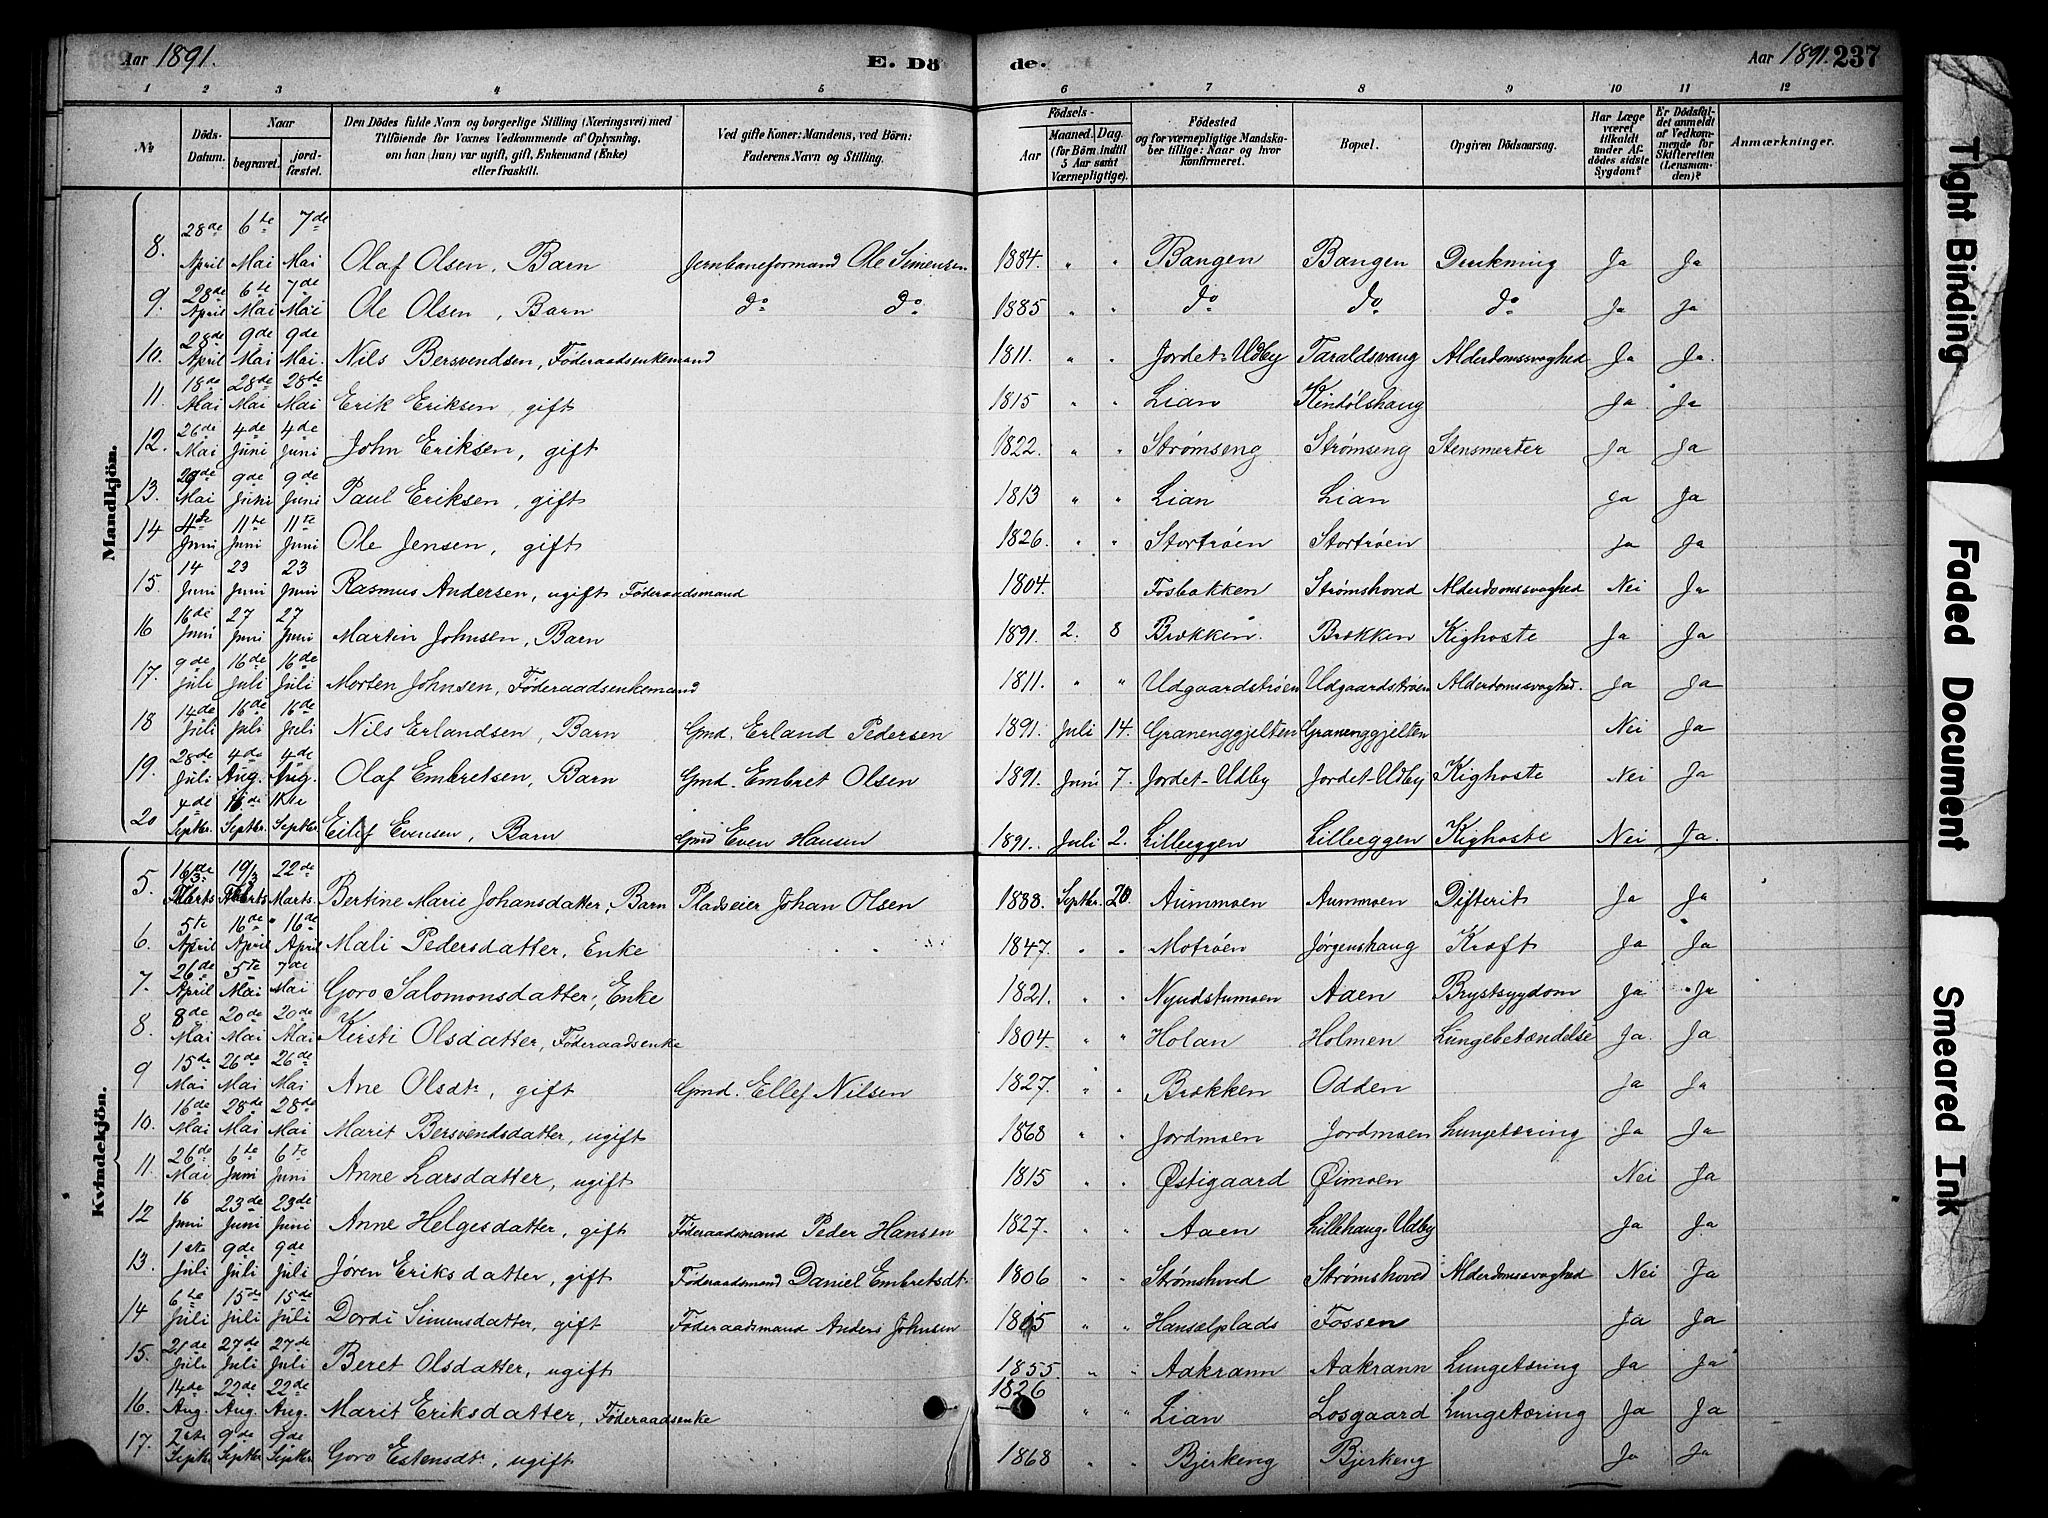 Aar 1891. E. Dö de. Aar 1891. 237
1 2 3 4 5 6 7 8 9 10 11 12
№ Döds-Datum. Naar begravet. jordfæstet. Den Dödes fulde Navn og borgerlige Stilling (Næringsvei) med Tilföiende for Voxnes Vedkommende af Oplysning, om han (hun) var ugift, gift, Enkemand (Enke) eller fraskilt. Ved gifte Koner: Mandens, ved Börn: Faderens Navn og Stilling. Födsels- Aar Maaned. Dag. (for Börn indtil 5 Aar samt Værnepligtige). Födested og for værnepligtige Mandskaber tillige: Naar og hvor Konfirmeret. Bopæl. Opgiven Dödsaarsag. Har Læge været tilkaldt under Afdödes sidste Sygdom? Er Dödsfaldet anmeldt af Vedkommende for Skifteretten (Lensmanden)? Anmærkninger.
Mandkjön.
8. 28de April 6te Mai 7de Mai Olaf Olsen, Barn Jernbaneformand Ole Simensen 1884. " " Bangen Bangen Drukning Ja Ja
9. 28de April 6te Mai 7de Mai Ole Olsen, Barn do do 1885 " " do do do Ja Ja
10. 28de April 9de Mai 9de Mai. Nils Bersvendsen, Föderaadsenkemand 1811. " " Jordet-Udby Taraldsvang Alderdomssvaghed Ja Ja.
11. 18de Mai 28de Mai 28de Mai Erik Eriksen, gift 1815 " " Lian Kindølshaug Ja Ja
12. 26de Mai 4de Juni 4de Juni John Eriksen, gift 1822. " " Strømseng Strømseng Stensmerter Ja Ja
13. 29de Mai 9de Juni 9de Juni Paul Eriksen, gift 1813 " " Lian Lian Ja Ja
14 Juni 11te Juni 11te Juni Ole Jensen, gift 1826. " " Stortrøen Stortrøen Ja Ja
15. 14 Juni 23 Juni 23 Juni Rasmus Andersen, ugift Föderaadsmand 1804. Fosbakken Strømshoved Alderdomssvaghed Nei Ja
16 16de Juni 27 Juni 27 Juni Martin Johnsen, Barn 1891. 2. 8 Brækken. Brækken Kighoste Ja Ja
17. 9de Juli 16de Juli 16de Juli Morten Johnsen, Föderaadsenkemand 1811. " " Udgaardstrøen Udgaardstrøen Alderdomssvaghed. Ja Ja
18 14de Juli 16de Juli 16de Juli Nils Erlandsen, Barn Gmd. Erland Pedersen 1891. Juli 14. Granenggjelten Granenggjelten Nei Ja
19. 28de Juli 4de Aug. 4de Aug. Olaf Embretsen, Barn Gmd. Embret Olsen 1891. Juni 7. Jordet-Udby Jordet-Udby Kighoste Nei Ja
20 4de Septbr. Septbr. Septbr. Eilef Evensen, Barn Gmd Even Hansen 1891. Juli 2. Lilleeggen Lilleeggen Kighoste Nei Ja.
Kvindekjön.
5. Marts 19/3 Marts 22de Marts. Bertine Marie Johansdatter, Barn Pladseier Johan Olsen 1888. Septbr. 20. Aummoen Aummoen Difterit Ja Ja
6. 5te April 16de April 16de April Mali Pedersdatter, Enke 1847. " " Motrøen Jørgenshaug Kræft Ja Ja
7. 26de April 5te Mai 7de Mai Goro Salomonsdatter, Enke 1821. " " Nyudstumoen Aaen Brystsygdom Ja Ja
8. 8de Mai 20de Mai 20de Mai Kirsti Olsdatter, Föderaadsenke 1804. " " Holan Holmen Lungebetændelse Ja. Ja
9 15de Mai 26de Mai 26de Mai Ane Olsdtr, gift Gmd. Ellef Nilsen 1827. " " Brækken Odden Ja Ja
10. 16de Mai 28de Mai 28de Mai Marit Bersvendsdatter, ugift 1868 " " Jordmoen Jordmoen Lungetæring Ja Ja
11. 26de Mai 6te Juni 6te Juni Anne Larsdatter, ugift 1815 " " Østigaard Øimoen Nei Ja
12 16 Juni 23de Juni 23de Juni Anne Helgesdatter, gift Föderaadsmand Peder Hansen 1827. " " Aaen Lillehaug-Udby Ja Ja
13. 1ste Juli 9de Juli 9de Juli Jøren Eriksdatter, gift Föderaadsmand Daniel Embretsdt. 1806 " " Strømshoved Strømshoved Alderdomssvaghed Nei Ja
14 6te Juli 15de Juli 15de Juli Dordi Simensdatter, gift Föderaadsmand Anders Johnsen 1815 " " Hansælplads Fossen Ja Ja
15. 21de Juli 27de Juli 27de Juli Beret Olsdatter, ugift 1855. " " Aakrann Aakrann Lungetæring Ja Ja
16. 14de Aug. 22de Aug. 22de Aug. Marit Eriksdatter, Föderaadsenke 1826 " " Lian Losgaard Lungetæring Ja Ja
17. Septbr 9de Septbr 9de Septbr Goro Estensdtr, ugift 1868 " " Bjerkeng Bjerkeng Ja Ja
Tight Binding
Faded Document
Smeared Ink